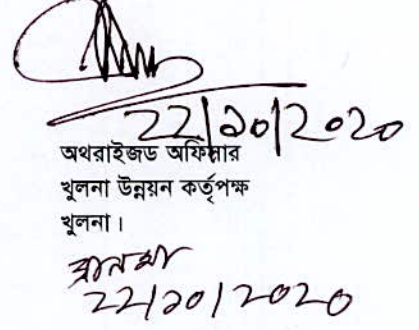 22/১০/2020
অথরাইজড অফিসার
খুলনা উন্নয়ন কর্তৃপক্ষ
খুলনা।
22/১০/2020